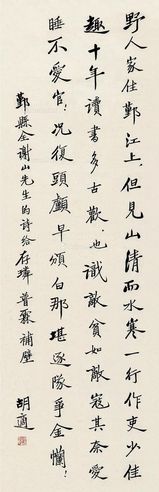 野人家住鄞江上，但見山清而水寒一行作吏少佳
趣十年讀書多古歡，也識敵貧如敵寇其奈愛
睡不愛官！況復頭顱早頒白那堪逐隊爭金襴！
鄞縣全謝山先生的詩給存璋 普霖補壁
胡適